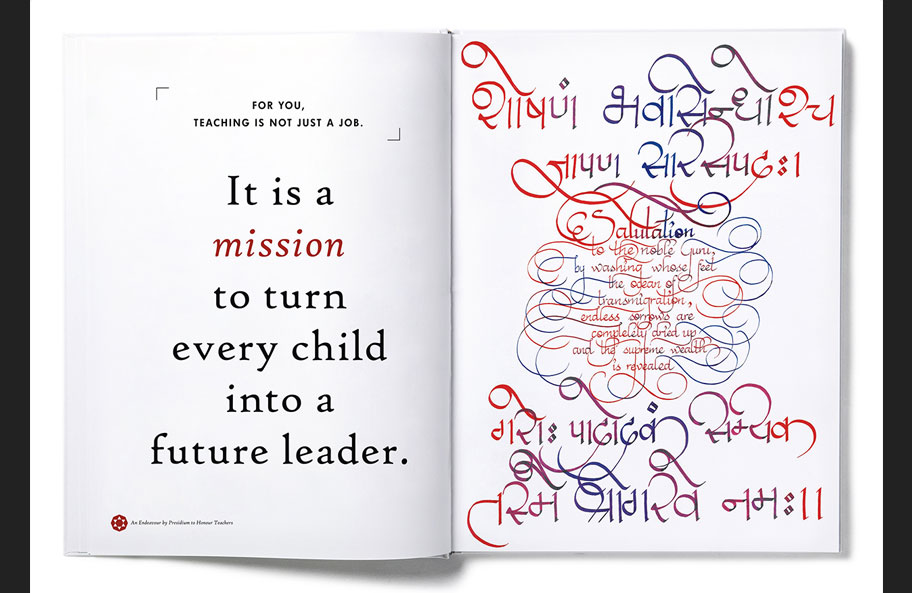 FOR YOU,
TEACHING IS NOT JUST A JOB.
It is a
mission
to turn
every child
into a
future leader.
An Endeavour by Presidium to Honour Teachers
शोषणं भवसिन्धोश्च
ज्ञापणं सारसंपदः।
Salutation
to the noble Guru,
by washing whose feet
the ocean of
transmigration,
endless sorrows are
completely dried up
and the supreme wealth
is revealed
गुरोः पादोदकं सम्यक्
तस्मै श्रीगुरवे नमः।।